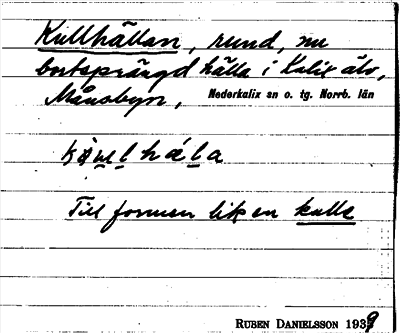 Kullhällan, rund, nu
bortsprängd hälla i Kalix älv,
Månsbyn, Nederkalix sn o. tg. Norrb. län
hála
Till formen lik en kulle
RUBEN DANIELSSON 1939